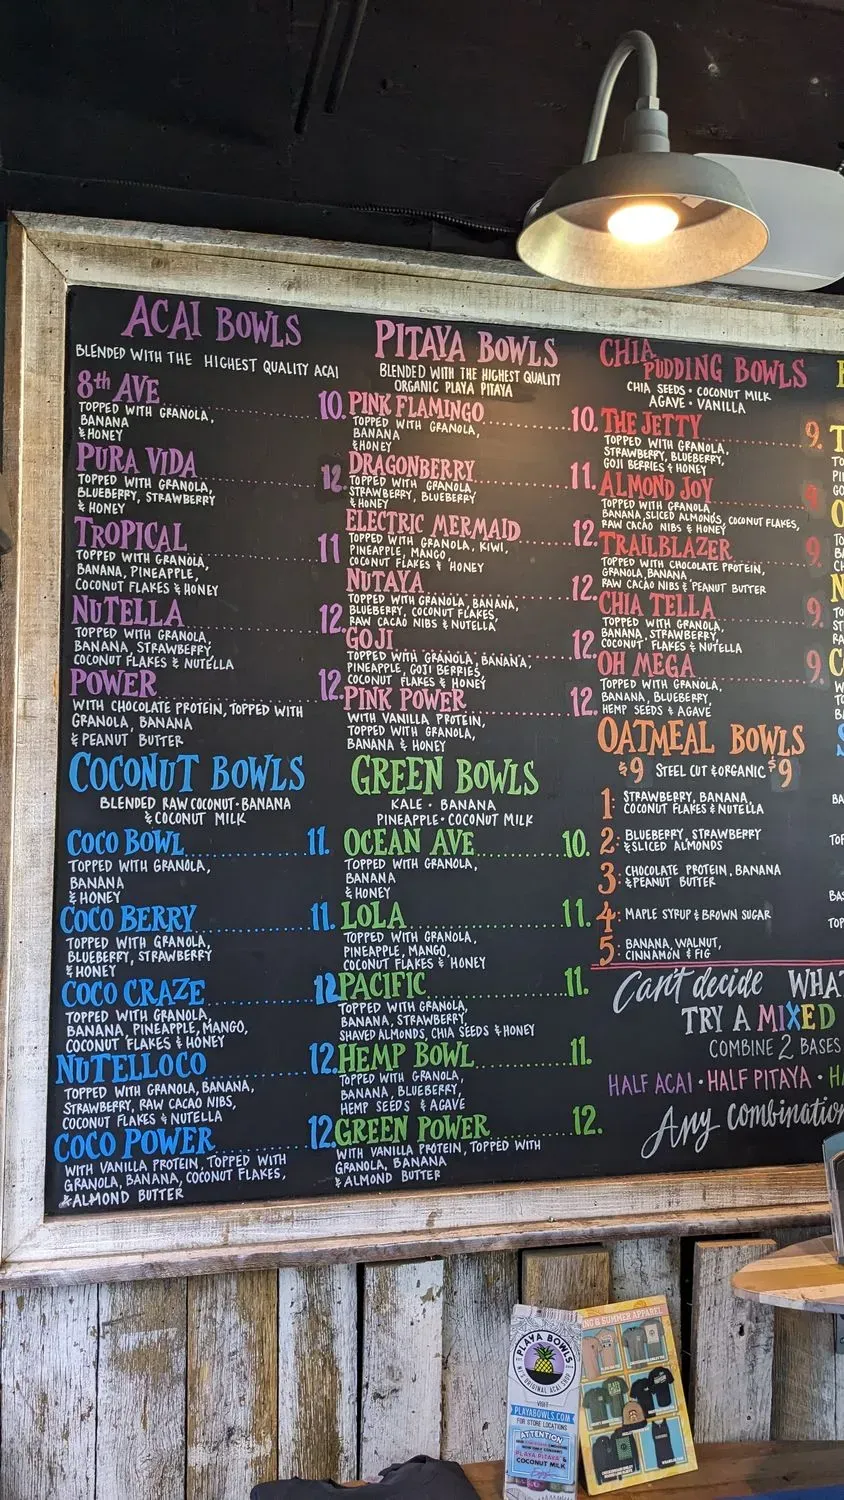 ACAI BOWLS
BLENDED WITH THE HIGHEST QUALITY ACAI
8th AVE 10.
TOPPED WITH GRANOLA,
BANANA
& HONEY
PURA VIDA 12.
TOPPED WITH GRANOLA,
BLUEBERRY, STRAWBERRY
& HONEY
TROPICAL 11
TOPPED WITH GRANOLA,
BANANA, PINEAPPLE,
COCONUT FLAKES & HONEY
NUTELLA 12.
TOPPED WITH GRANOLA,
BANANA, STRAWBERRY,
COCONUT FLAKES & NUTELLA
POWER 12.
WITH CHOCOLATE PROTEIN, TOPPED WITH
GRANOLA, BANANA
& PEANUT BUTTER
COCONUT BOWLS
BLENDED RAW COCONUT • BANANA
& COCONUT MILK
COCO BOWL 11.
TOPPED WITH GRANOLA,
BANANA
& HONEY
COCO BERRY 11.
TOPPED WITH GRANOLA,
BLUEBERRY, STRAWBERRY
& HONEY
COCO CRAZE 12
TOPPED WITH GRANOLA,
BANANA, PINEAPPLE, MANGO,
COCONUT FLAKES & HONEY
NUTELLOCO 12.
TOPPED WITH GRANOLA, BANANA,
STRAWBERRY, RAW CACAO NIBS,
COCONUT FLAKES & NUTELLA
COCO POWER 12.
WITH VANILLA PROTEIN, TOPPED WITH
GRANOLA, BANANA, COCONUT FLAKES,
& ALMOND BUTTER
PITAYA BOWLS
BLENDED WITH THE HIGHEST QUALITY
ORGANIC PLAYA PITAYA
PINK FLAMINGO 10.
TOPPED WITH GRANOLA,
BANANA
& HONEY
DRAGONBERRY 11.
TOPPED WITH GRANOLA
STRAWBERRY, BLUEBERRY
& HONEY
ELECTRIC MERMAID 12.
TOPPED WITH GRANOLA, KIWI,
PINEAPPLE, MANGO,
COCONUT FLAKES & HONEY
NUTAYA 12.
TOPPED WITH GRANOLA, BANANA,
BLUEBERRY, COCONUT FLAKES,
RAW CACAO NIBS & NUTELLA
GOJI 12.
TOPPED WITH GRANOLA, BANANA,
PINEAPPLE, GOJI BERRIES,
COCONUT FLAKES & HONEY
PINK POWER 12.
WITH VANILLA PROTEIN,
TOPPED WITH GRANOLA,
BANANA & HONEY
GREEN BOWLS
KALE • BANANA
PINEAPPLE • COCONUT MILK
OCEAN AVE 10.
TOPPED WITH GRANOLA,
BANANA
& HONEY
LOLA 11.
TOPPED WITH GRANOLA,
PINEAPPLE, MANGO,
COCONUT FLAKES & HONEY
PACIFIC 11.
TOPPED WITH GRANOLA,
BANANA, STRAWBERRY,
SHAVED ALMONDS, CHIA SEEDS & HONEY
HEMP BOWL 11.
TOPPED WITH GRANOLA,
BANANA, BLUEBERRY,
HEMP SEEDS & AGAVE
GREEN POWER 12.
WITH VANILLA PROTEIN, TOPPED WITH
GRANOLA, BANANA
& ALMOND BUTTER
CHIA
PUDDING BOWLS
CHIA SEEDS • COCONUT MILK
AGAVE • VANILLA
THE JETTY 9.
TOPPED WITH GRANOLA,
STRAWBERRY, BLUEBERRY,
GOJI BERRIES & HONEY
ALMOND JOY 9.
TOPPED WITH GRANOLA,
BANANA, SLICED ALMONDS, COCONUT FLAKES,
RAW CACAO NIBS & HONEY
TRAILBLAZER 9.
TOPPED WITH CHOCOLATE PROTEIN,
GRANOLA, BANANA,
RAW CACAO NIBS & PEANUT BUTTER
CHIA TELLA 9.
TOPPED WITH GRANOLA,
BANANA, STRAWBERRY,
COCONUT FLAKES & NUTELLA
OH MEGA 9.
TOPPED WITH GRANOLA,
BANANA, BLUEBERRY,
HEMP SEEDS & AGAVE
OATMEAL BOWLS
$9 STEEL CUT & ORGANIC $9
1: STRAWBERRY, BANANA,
COCONUT FLAKES & NUTELLA
2: BLUEBERRY, STRAWBERRY
& SLICED ALMONDS
3: CHOCOLATE PROTEIN, BANANA
& PEANUT BUTTER
4: MAPLE SYRUP & BROWN SUGAR
5: BANANA, WALNUT,
CINNAMON & FIG
Can't decide WHA
TRY A MIXED
COMBINE 2 BASES
HALF ACAI • HALF PITAYA • HA
Any combination
PLAYA BOWLS
NJ'S ORIGINAL ACAI SHOP
VISIT
PLAYABOWLS.COM
FOR STORE LOCATIONS
ATTENTION
PLAYA PITAYA &
COCONUT MILK
NG & SUMMER APPAREL